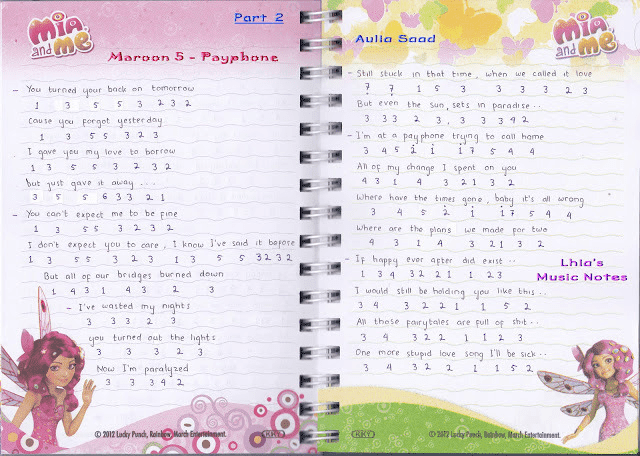 Mia and me
Part 2
Maroon 5 - Payphone
- You turned your back on tomorrow
1 3 5 5 3 2 3 2
Cause you forgot yesterday
1 3 5 5 3 2 3
I gave you my love to borrow
1 3 5 5 3 2 3 2
but just gave it away ...
3 5 5 6 3 3 2 1
- You can't expect me to be fine
1 3 5 5 3 2 3 2
I don't expect you to care, I know I've said it before
1 3 5 5 3 2 3 1 3 5 5 3 2 3 2
But all of our bridges burned down
1 4 3 1 4 3 2 3
- I've wasted my nights
3 3 3 2 3
you turned out the lights
3 3 3 2 3
Now I'm paralyzed
3 3 3 4 2
© 2012 Lucky Punch, Rainbow, March Entertainment.
KKY
Aulia Saad
Mia and me
- Still stuck in that time, when we called it love
7 7 1 5 3 3 3 3 2 3
But even the sun sets in paradise..
3 3 3 2 3, 3 3 3 4 2
- I'm at a payphone trying to call home
3 4 5 2 1 1 7 5 4 4
All of my change I spent on you
4 3 1 4 3 2 1 3 2
Where have the times gone, baby it's all wrong
3 4 5 2 1 1 7 5 4 4
Where are the plans we made for two
4 3 1 4 3 2 1 3 2
- If happy ever after did exist ..
1 3 4 3 2 2 1 1 2 3
I would still be holding you like this ..
3 4 3 2 2 1 1 5 2
All those fairytales are full of shit..
3 4 3 2 2 1 1 2 3
One more stupid love song I'll be sick ..
3 4 3 2 2 1 1 5 2
Lhia's
Music Notes
© 2012 Lucky Punch, Rainbow, March Entertainment.
KKY